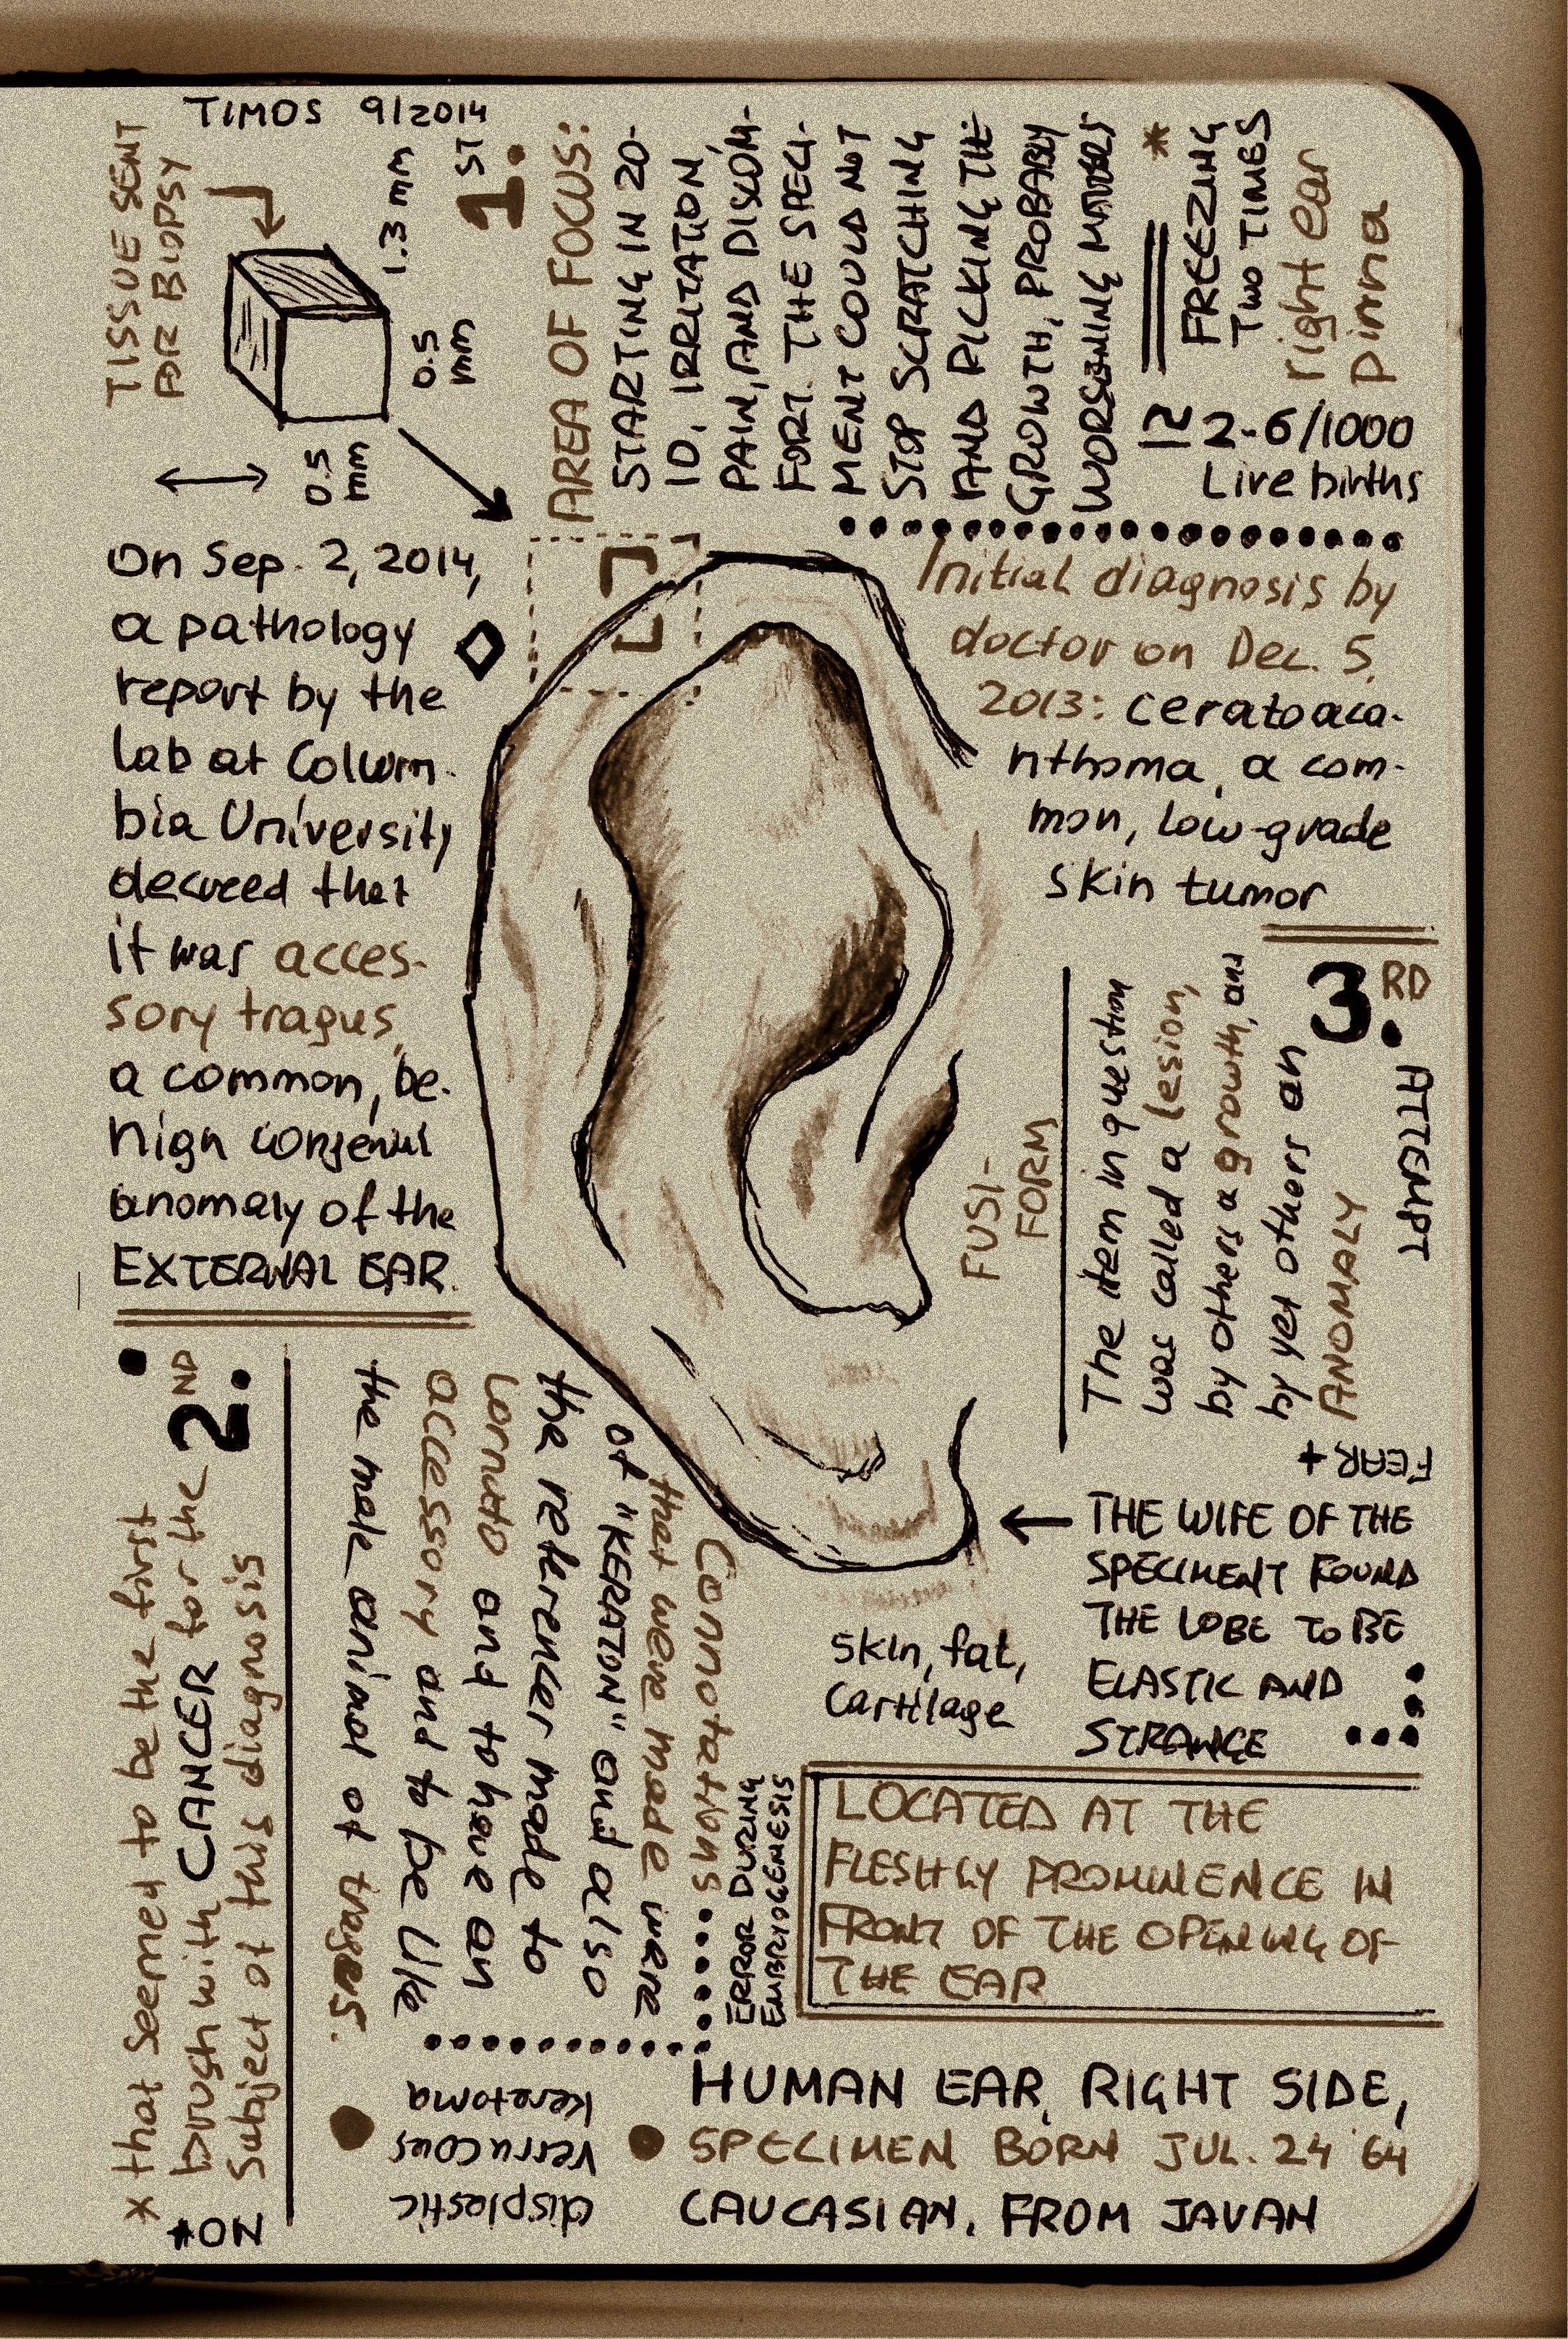 TIMOS 9/2014
TISSUE SENT
FOR BIOPSY
1.3 mm
0.5
mm
0.5
mm
1.ST
AREA OF FOCUS:
STARTING IN 20-
10, IRRITATION,
PAIN, AND DISCOM-
FORT. THE SPECI-
MENT COULD NOT
STOP SCRATCHING
AND PICKING THE
GROWTH, PROBABLY
WORSENING MATTERS
*
FREEZING
TWO TIMES
right ear
pinna
≅ 2-6/1000
Live births
On Sep. 2, 2014,
a pathology
report by the
lab at Colum-
bia University
decreed that
it was acces-
sory tragus,
a common, be-
nign
anomaly of the
EXTERNAL EAR.
Initial diagnosis by
doctor on Dec. 5,
2013: ceratoaca-
nthoma, a com-
mon, low-grade
skin tumor
3.RD
ATTEMPT
The item in question
was called a lesion,
by others a growth, and
by yet others an
ANOMALY
FUSI-
FORM
FEAR +
THE WIFE OF THE
SPECIMENT FOUND
THE LOBE TO BE
ELASTIC AND
STRANGE
skin, fat,
cartilage
2.ND
* that seemed to be the first
brush with CANCER for the
subject of this diagnosis
*ON
Connotations
that were made were
of "KERATON" and also
the references made to
cornuto and to have an
accessory and to be like
the male animal of tragus.
ERROR DURING
EMBRIOGENESIS
LOCATED AT THE
FLESHLY PROMINENCE IN
FRONT OF THE OPENING OF
THE EAR
displastic
verrucous
keratoma
HUMAN EAR, RIGHT SIDE,
SPECIMEN BORN JUL. 24 '64
CAUCASIAN, FROM JAVAN